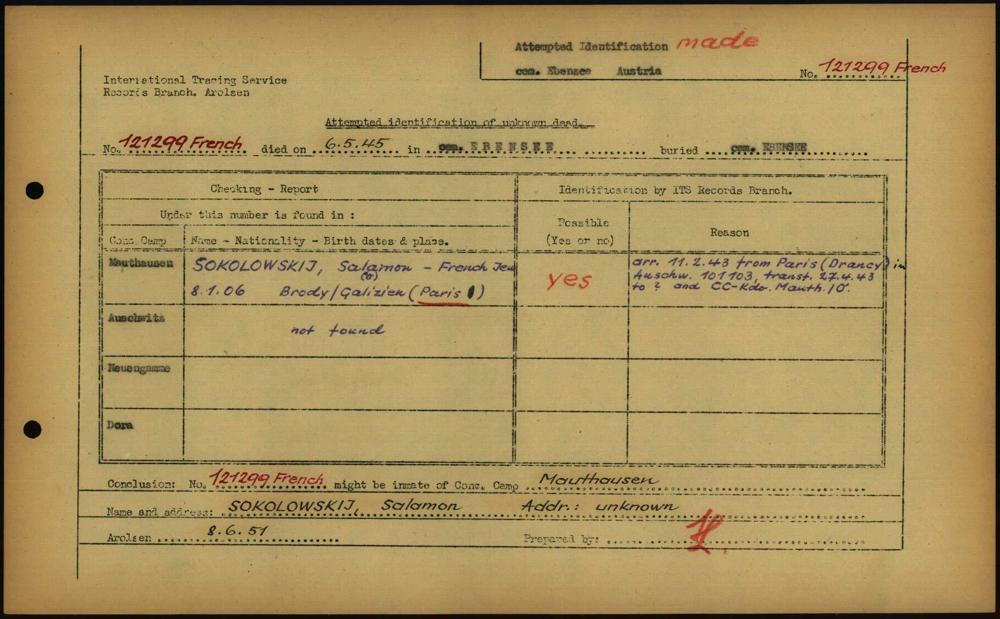 Attempted Identification made
cem. Ebensee Austria
No. 121299 French
International Tracing Service
Records Branch. Arolsen
Attempted identification of unknown dead.
No. 121299 French died on 6.5.45 in com. EBENSEE buried com. EBENSEE
Checking - Report
Identification by ITS Records Branch.
Under this number is found in :
Possible
(Yes or no)
Reason
Conc. Camp
Name - Nationality - Birth dates & place.
Mauthausen
SOKOLOWSKIJ, Salamon - French Jew
(o)
8.1.06 Brody/Galizien (Paris )
yes
arr. 11.2.43 from Paris (Drancy) in
Auschw. 101103, transf. 27.4.43
to ? and CC-Kdo. Mauth./
Auschwitz
not found
Neuengamme
Dora
Conclusion: No. 121299 French might be inmate of Conc. Camp Mauthausen
Name and address: SOKOLOWSKIJ, Salamon Addr.: unknown
Arolsen 8.6.51
Prepared by: